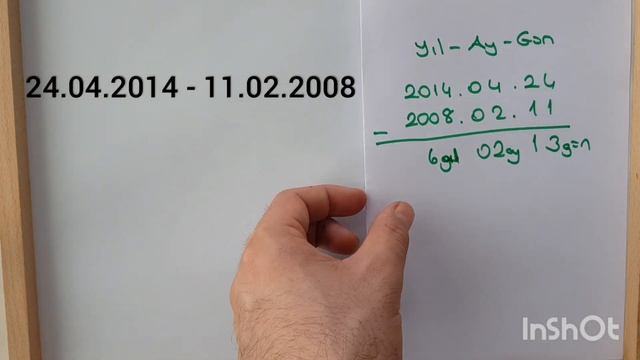 24.04.2014 - 11.02.2008
Yıl - Ay - Gün
2014.04.24
- 2008.02.11
6yıl 02ay 13gün
InShOt